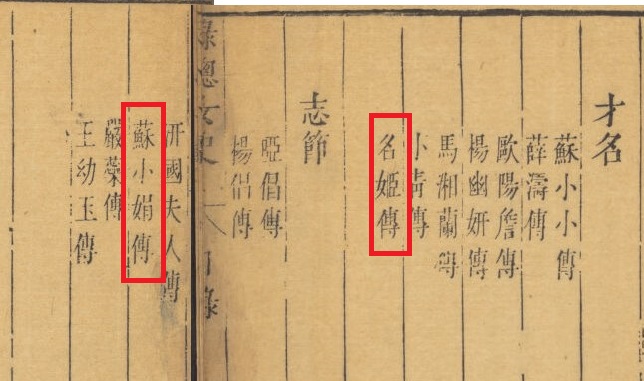 才名
蘇小小傳
薛濤傳
歐陽詹傳
楊幽妍傳
馬湘蘭傳
小青傳
名姬傳
志節
啞倡傳
楊倡傳
女史 目錄
汧國夫人傳
蘇小娟傳
嚴蘂傳
王幼玉傳